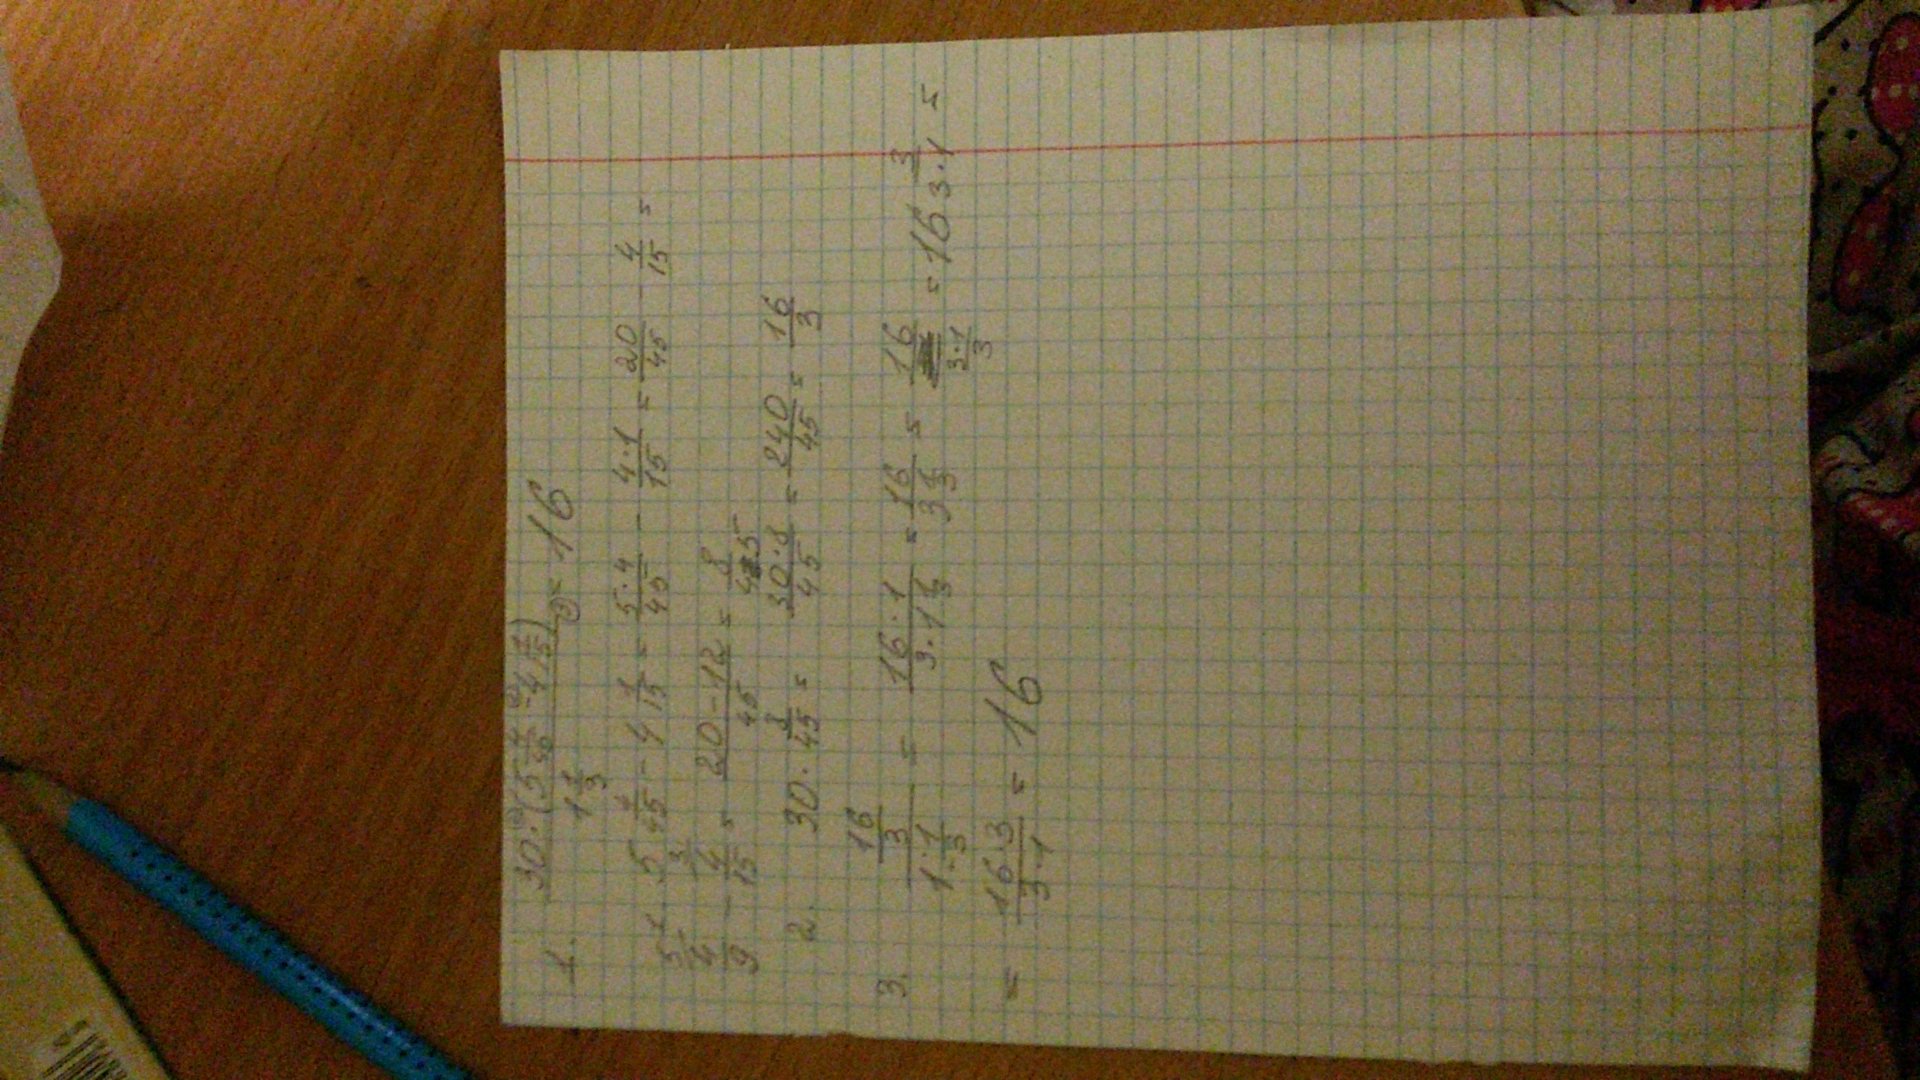 1. 30·(5 4/45 - 4 1/15) / 1 1/3 = 16
1. 5 4/45 - 4 1/15 = 5·4/45 - 4·1/15 = 20/45 - 4/15 =
4/9 - 4/15 = 20-12/45 = 8/45
2. 30 · 8/45 = 30·8/45 = 240/45 = 16/3
3. 16/3 / 1·1/3 = 16·1 / 3·1 1/3 = 16 / 3 1/3 = 16 / 3·1/3 = 16 3/3·1 =
= 16·3/3·1 = 16